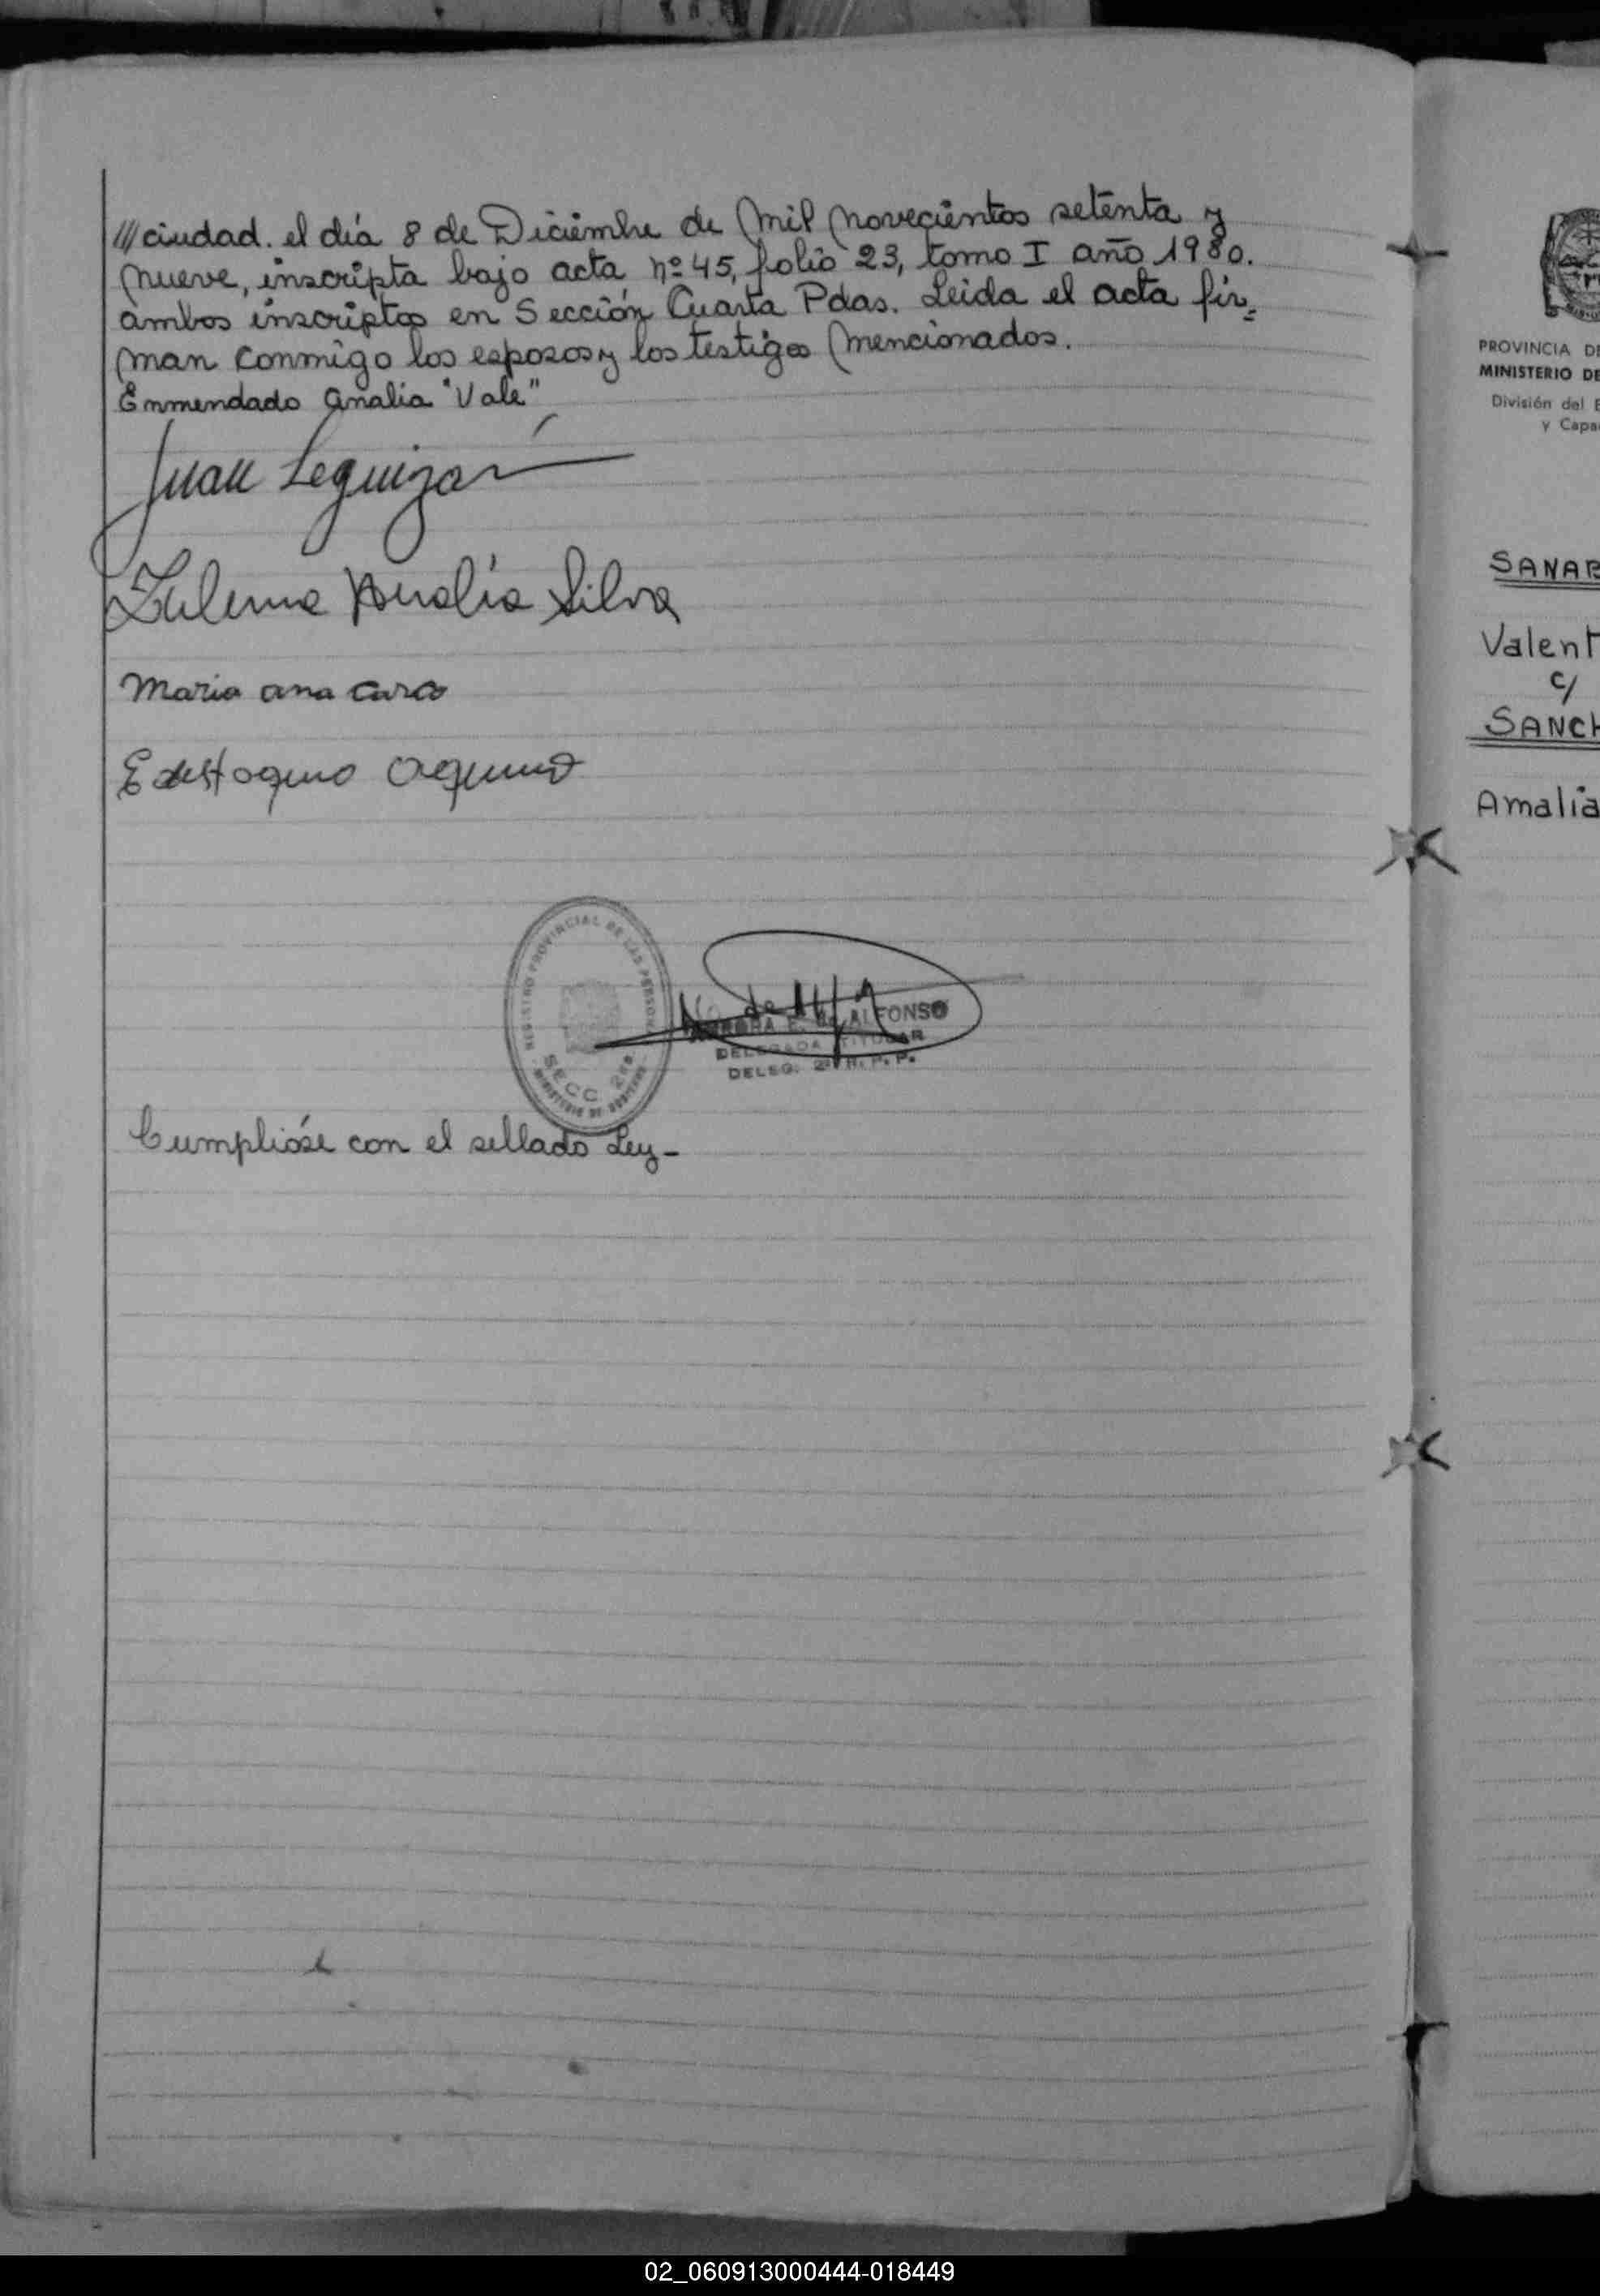 /// ciudad. el día 8 de Diciembre de Mil novecientos setenta y
nueve, inscripta bajo acta nº 45, folio 23, tomo I año 1980.
ambos inscriptos en Sección Cuarta Pdas. Leida el acta fir=
man conmigo los esposos y los testigos mencionados.
Enmendado Analia "Vale"
Juan Leguizar
Zulema Analía Silva
Maria ana
REGISTRO PROVINCIAL DE LAS PERSONAS
SECC. 2da.
MINISTERIO DE GOBIERNO
ALFONSO
DELEGADA TITULAR
DELEG. 2ª R. P. P.
Cumplióse con el sellado Ley-
PROVINCIA DE
MINISTERIO DE
División del E
y Capa
SANAB
Valent
c/
SANCH
Amalia
02_060913000444-018449